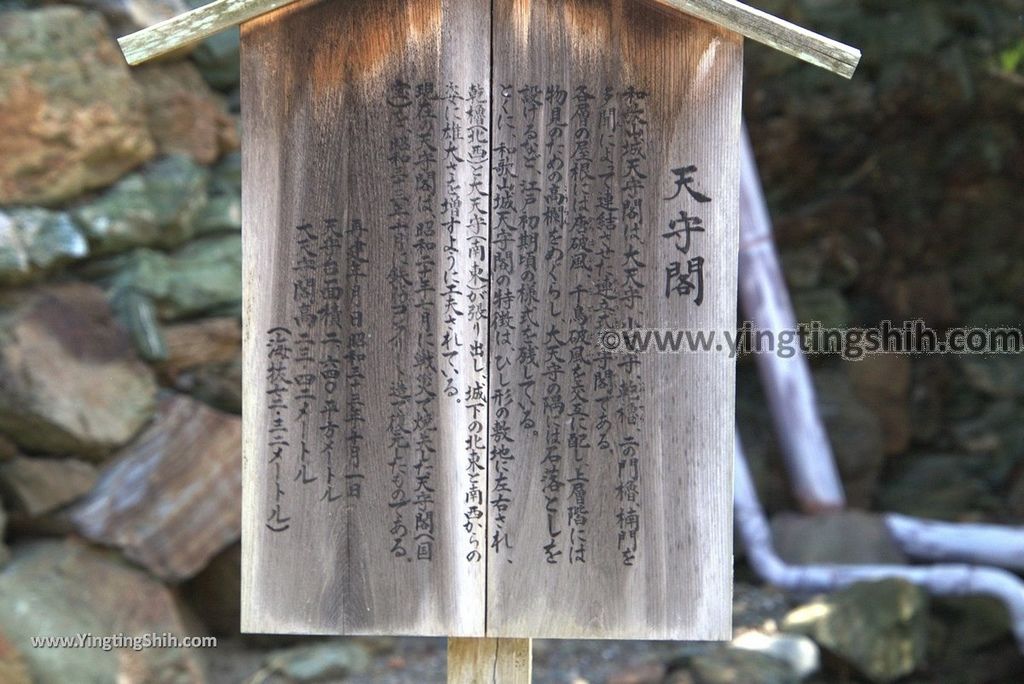 天守閣
和歌山城天守閣は大天守、小天守、乾櫓、二の門櫓、楠門を
多聞によって連結させた連立式天守閣である。
各層の屋根には唐破風、千鳥破風を交互に配し上層階には
物見のための高欄をめぐらし、大天守の隅には石落としを
設けるなど、江戸初期頃の様式を残している。
とくに、和歌山城天守閣の特徴は、ひし形の敷地に左右され、
乾櫓(北西)と大天守(南東)が張り出し、城下の北東と南西からの
姿に雄大さを増すように工夫されている。
現在の天守閣は、昭和二十年七月に戦災で焼失した天守閣(国
宝)を、昭和三十三年十月に鉄筋コンクリート造で復元したものである。
再建年月日 昭和三十三年十月一日
天守台面積 二・六四〇平方メートル
大天守閣高 二三・四二メートル
(海抜七二・三二メートル)
©www.yingtingshih.com
www.YingtingShih.com